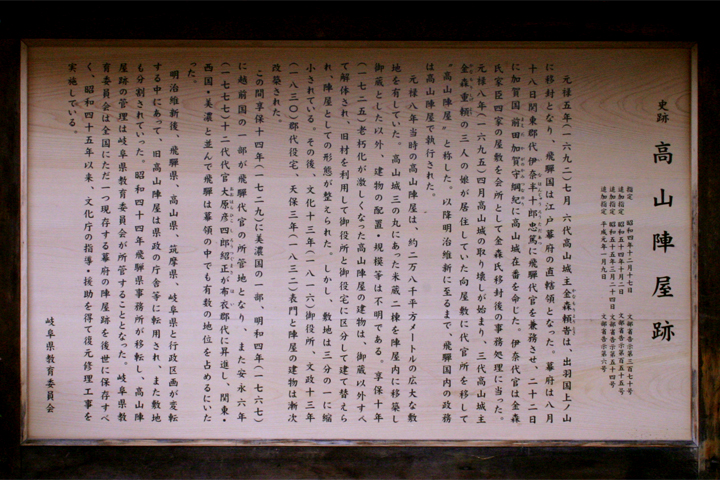 史跡 高山陣屋跡
指定 昭和四年十二月十七日 文部省告示第三百七十号
追加指定 昭和五十四年十月二日 文部省告示第百五十五号
追加指定 昭和五十五年三月二十四日 文部省告示第五十四号
追加指定 平成元年一月九日 文部省告示第六号
元禄五年(一六九二)七月 六代高山城主金森頼旹は、出羽国上ノ山
に移封となり、飛騨国は江戸幕府の直轄領となった。幕府は八月
十八日関東郡代 伊奈半十郎忠篤に飛騨代官を兼務させ、二十二日
に加賀国 前田加賀守綱紀に高山城在番を命じた。伊奈代官は金森
氏家臣四家の屋敷を会所として金森氏移封後の事務処理に当った。
元禄八年(一六九五)四月高山城の取り壊しが始まり、三代高山城主
金森重頼の三人の娘が居住していた向屋敷に代官所を移して
〝高山陣屋〟と称した。以降明治維新に至るまで、飛騨国内の政務
は高山陣屋で執行された。
元禄八年当時の高山陣屋は、約二万八千平方メートルの広大な敷
地を有していた。高山城三の丸にあった米蔵二棟を陣屋内に移築し
御蔵とした以外、建物の配置・規模等は不明である。享保十年
(一七二五)老朽化が激しくなった高山陣屋の建物は、御蔵以外すべ
て解体され、旧材を利用して御役所と御役宅に区分して建て替えら
れ、陣屋としての形態が整えられた。しかし、敷地は三分の一に縮
小されている。その後、文化十三年(一八一六)御役所、文政十三年
(一八三〇)郡代役宅、天保三年(一八三二)表門と陣屋の建物は漸次
改築された。
この間享保十四年(一七二九)に美濃国の一部、明和四年(一七六七)
に越前国の一部が飛騨代官の所管地となり、また安永六年
(一七七七)十二代代官大原彦四郎紹正が布衣郡代に昇進し、関東・
西国・美濃と並んで飛騨は幕領の中でも有数の地位を占めるにいた
った。
明治維新後、飛騨県、高山県、筑摩県、岐阜県と行政区画が変転
する中にあって、旧高山陣屋は県政の庁舎等に転用され、また敷地
も分割されていった。昭和四十四年飛騨県事務所が移転し、高山陣
屋跡の管理は岐阜県教育委員会が所管することとなった。岐阜県教
育委員会は全国にただ一つ現存する幕府の陣屋跡を後世に保存すべ
く、昭和四十五年以来、文化庁の指導・援助を得て復元修理工事を
実施している。
岐阜県教育委員会